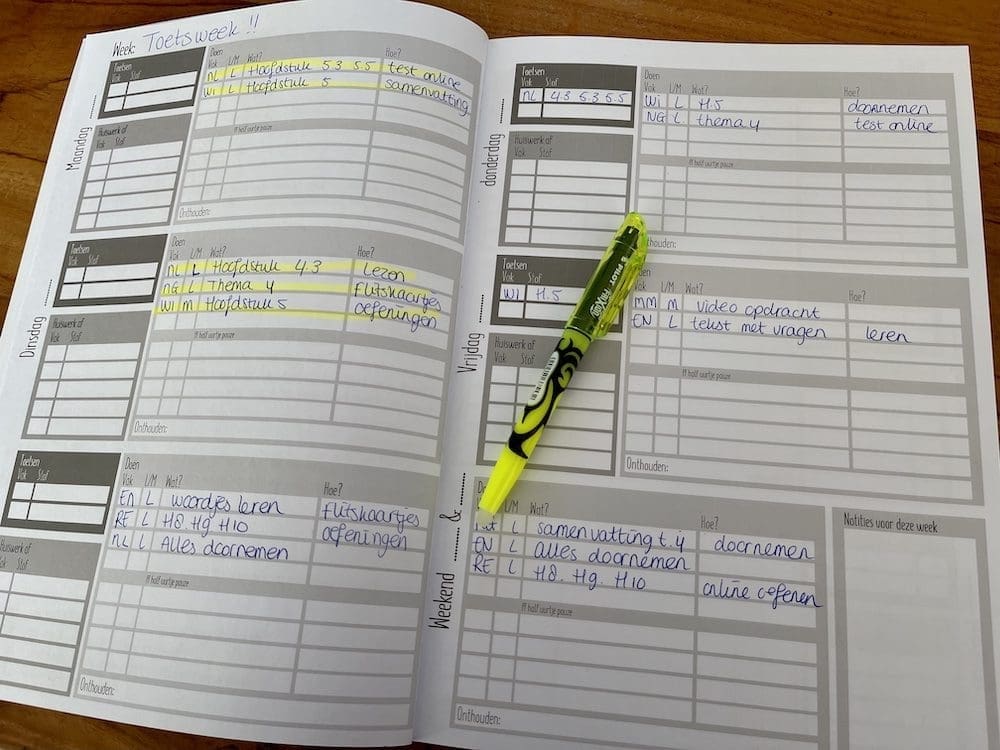 Week: Toetsweek !!
Maandag
Toetsen
Vak Stof
Huiswerk of
Vak Stof
Doen
Vak L/M Wat? Hoe?
NL L Hoofdstuk 5.3 5.5 test online
Wi L Hoofdstuk 5 samenvatting
!! half uurtje pauze
Onthouden:
Dinsdag
Toetsen
Vak Stof
Huiswerk of
Vak Stof
Doen
Vak L/M Wat? Hoe?
NL L Hoofdstuk 4.3 lezen
NG L Thema 4 flitskaartjes
Wi M Hoofdstuk 5 oefeningen
!! half uurtje pauze
Onthouden:
Toetsen
Vak Stof
Huiswerk of
Vak Stof
Doen
Vak L/M Wat? Hoe?
EN L woordjes leren flitskaartjes
RE L H8 H9 H10 oefeningen
NL L Alles doornemen
!! half uurtje pauze
Onthouden:
donderdag
Toetsen
Vak Stof
NL 4.3 5.3 5.5
Huiswerk of
Vak Stof
Doen
Vak L/M Wat? Hoe?
Wi L H.5 doornemen
NG L thema 4 test online
!! half uurtje pauze
thouden:
Vrijdag
Toetsen
Vak Stof
Wi H.5
Huiswerk of
Vak Stof
Doen
Vak L/M Wat? Hoe?
MM M video opdracht
EN L tekst met vragen leren
!! half uurtje pauze
Onthouden:
PILOT FRIXION
Weekend &
L/M Wat? Hoe?
L samenvatting t.4 doornemen
EN L alles doornemen
RE L H8. H9. H10 online oefenen
!! half uurtje pauze
Onthouden:
Notities voor deze week